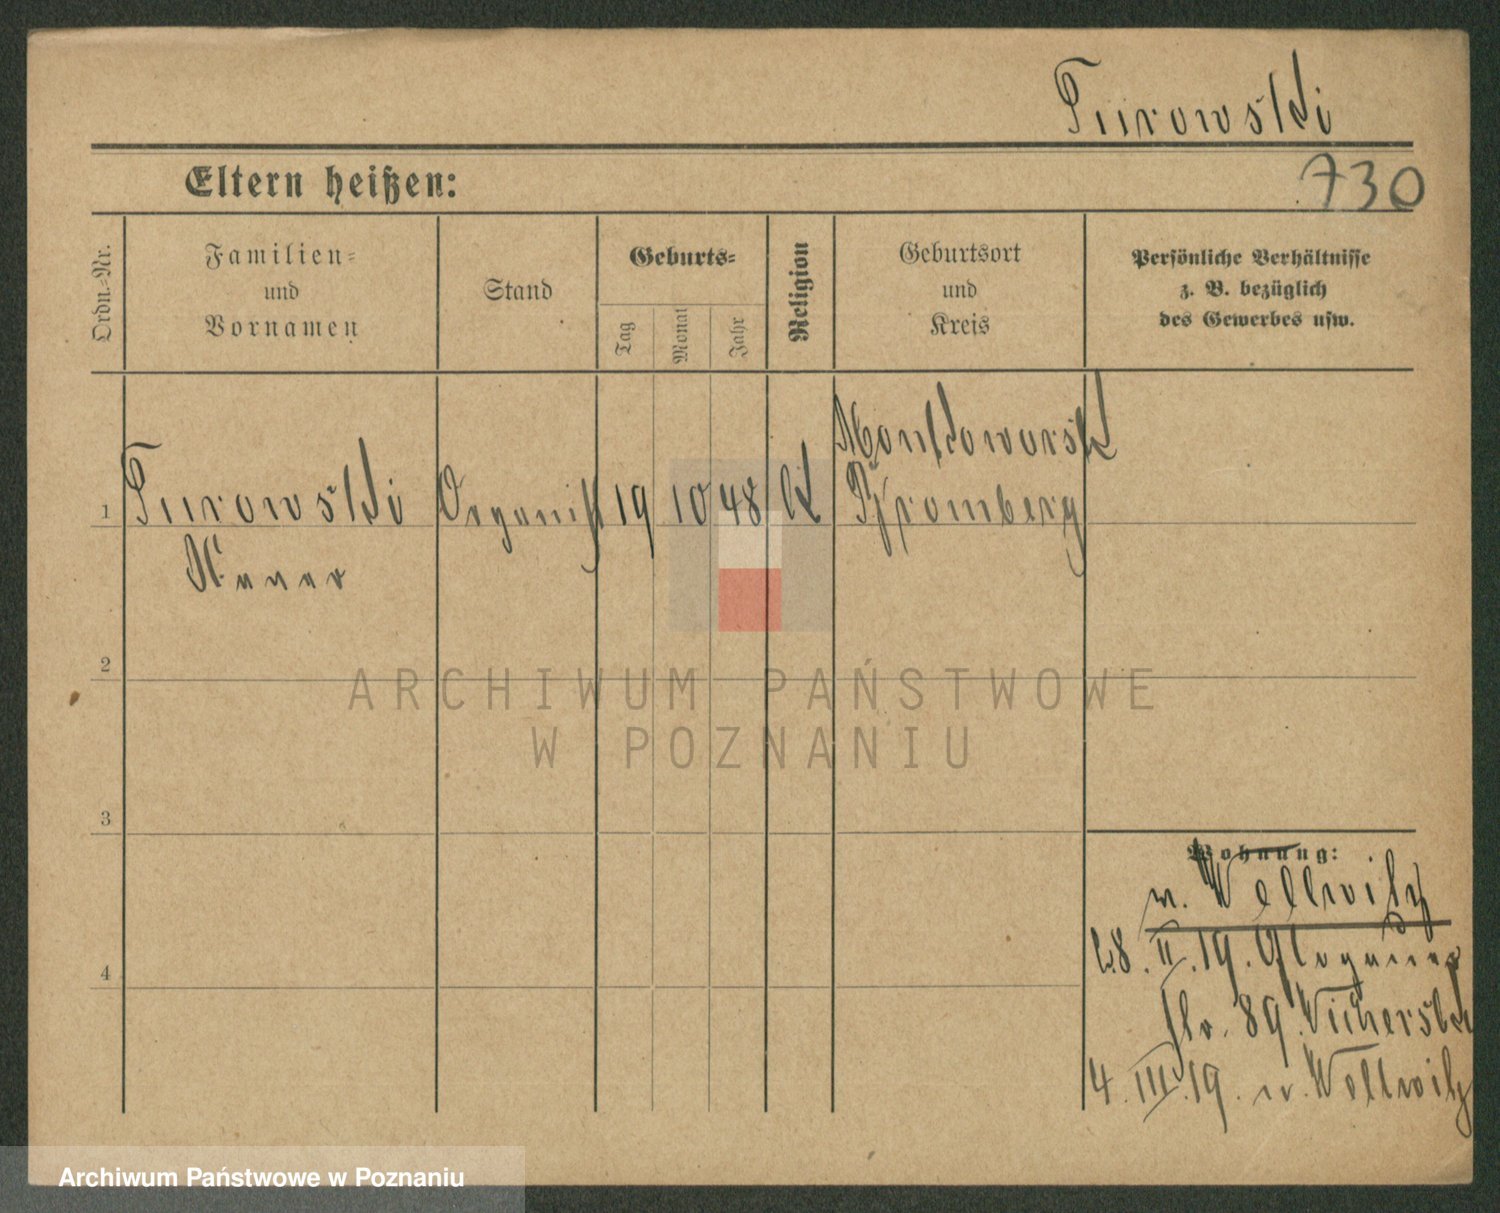 Turowski
Eltern heißen:
730
Ordn.-Nr.
Familien-
und
Vornamen
Stand
Geburts-
Tag
Monat
Jahr
Religion
Geburtsort
und
Kreis
Persönliche Verhältnisse
z. B. bezüglich
des Gewerbes usw.
1
Turowski
Organist
19
10
48
k
Bromberg
2
3
4
Wohnung:
n. Wollwitz
28. II. 19. Glogauer
str. 89
4. III. 19. n. Wollwitz
ARCHIWUM PAŃSTWOWE
W POZNANIU
Archiwum Państwowe w Poznaniu